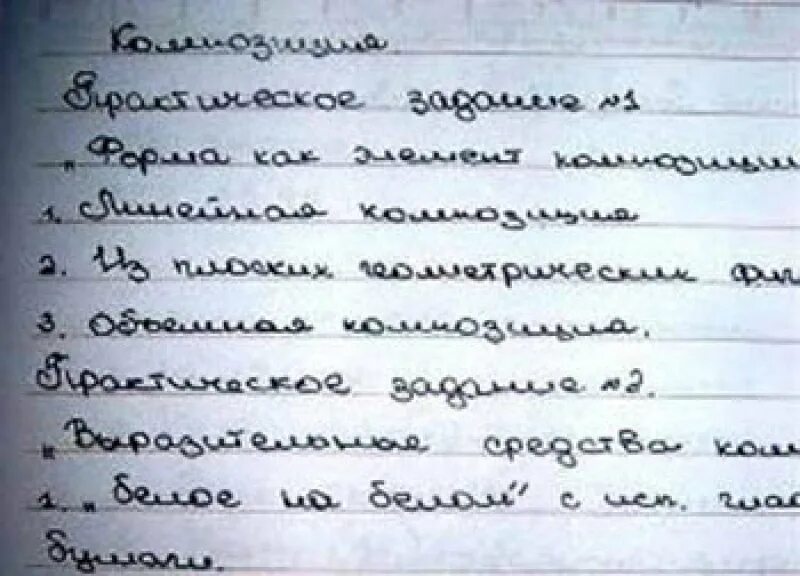 Композиция.
Практическое задание №1
„Форма как элемент композиции
1. Линейная композиция
2. Из плоских геометрических фиг
3. Объемная композиция.
Практическое задание №2.
„Выразительные средства ком
1. „белое на белом" с исп. глас
бумаги.